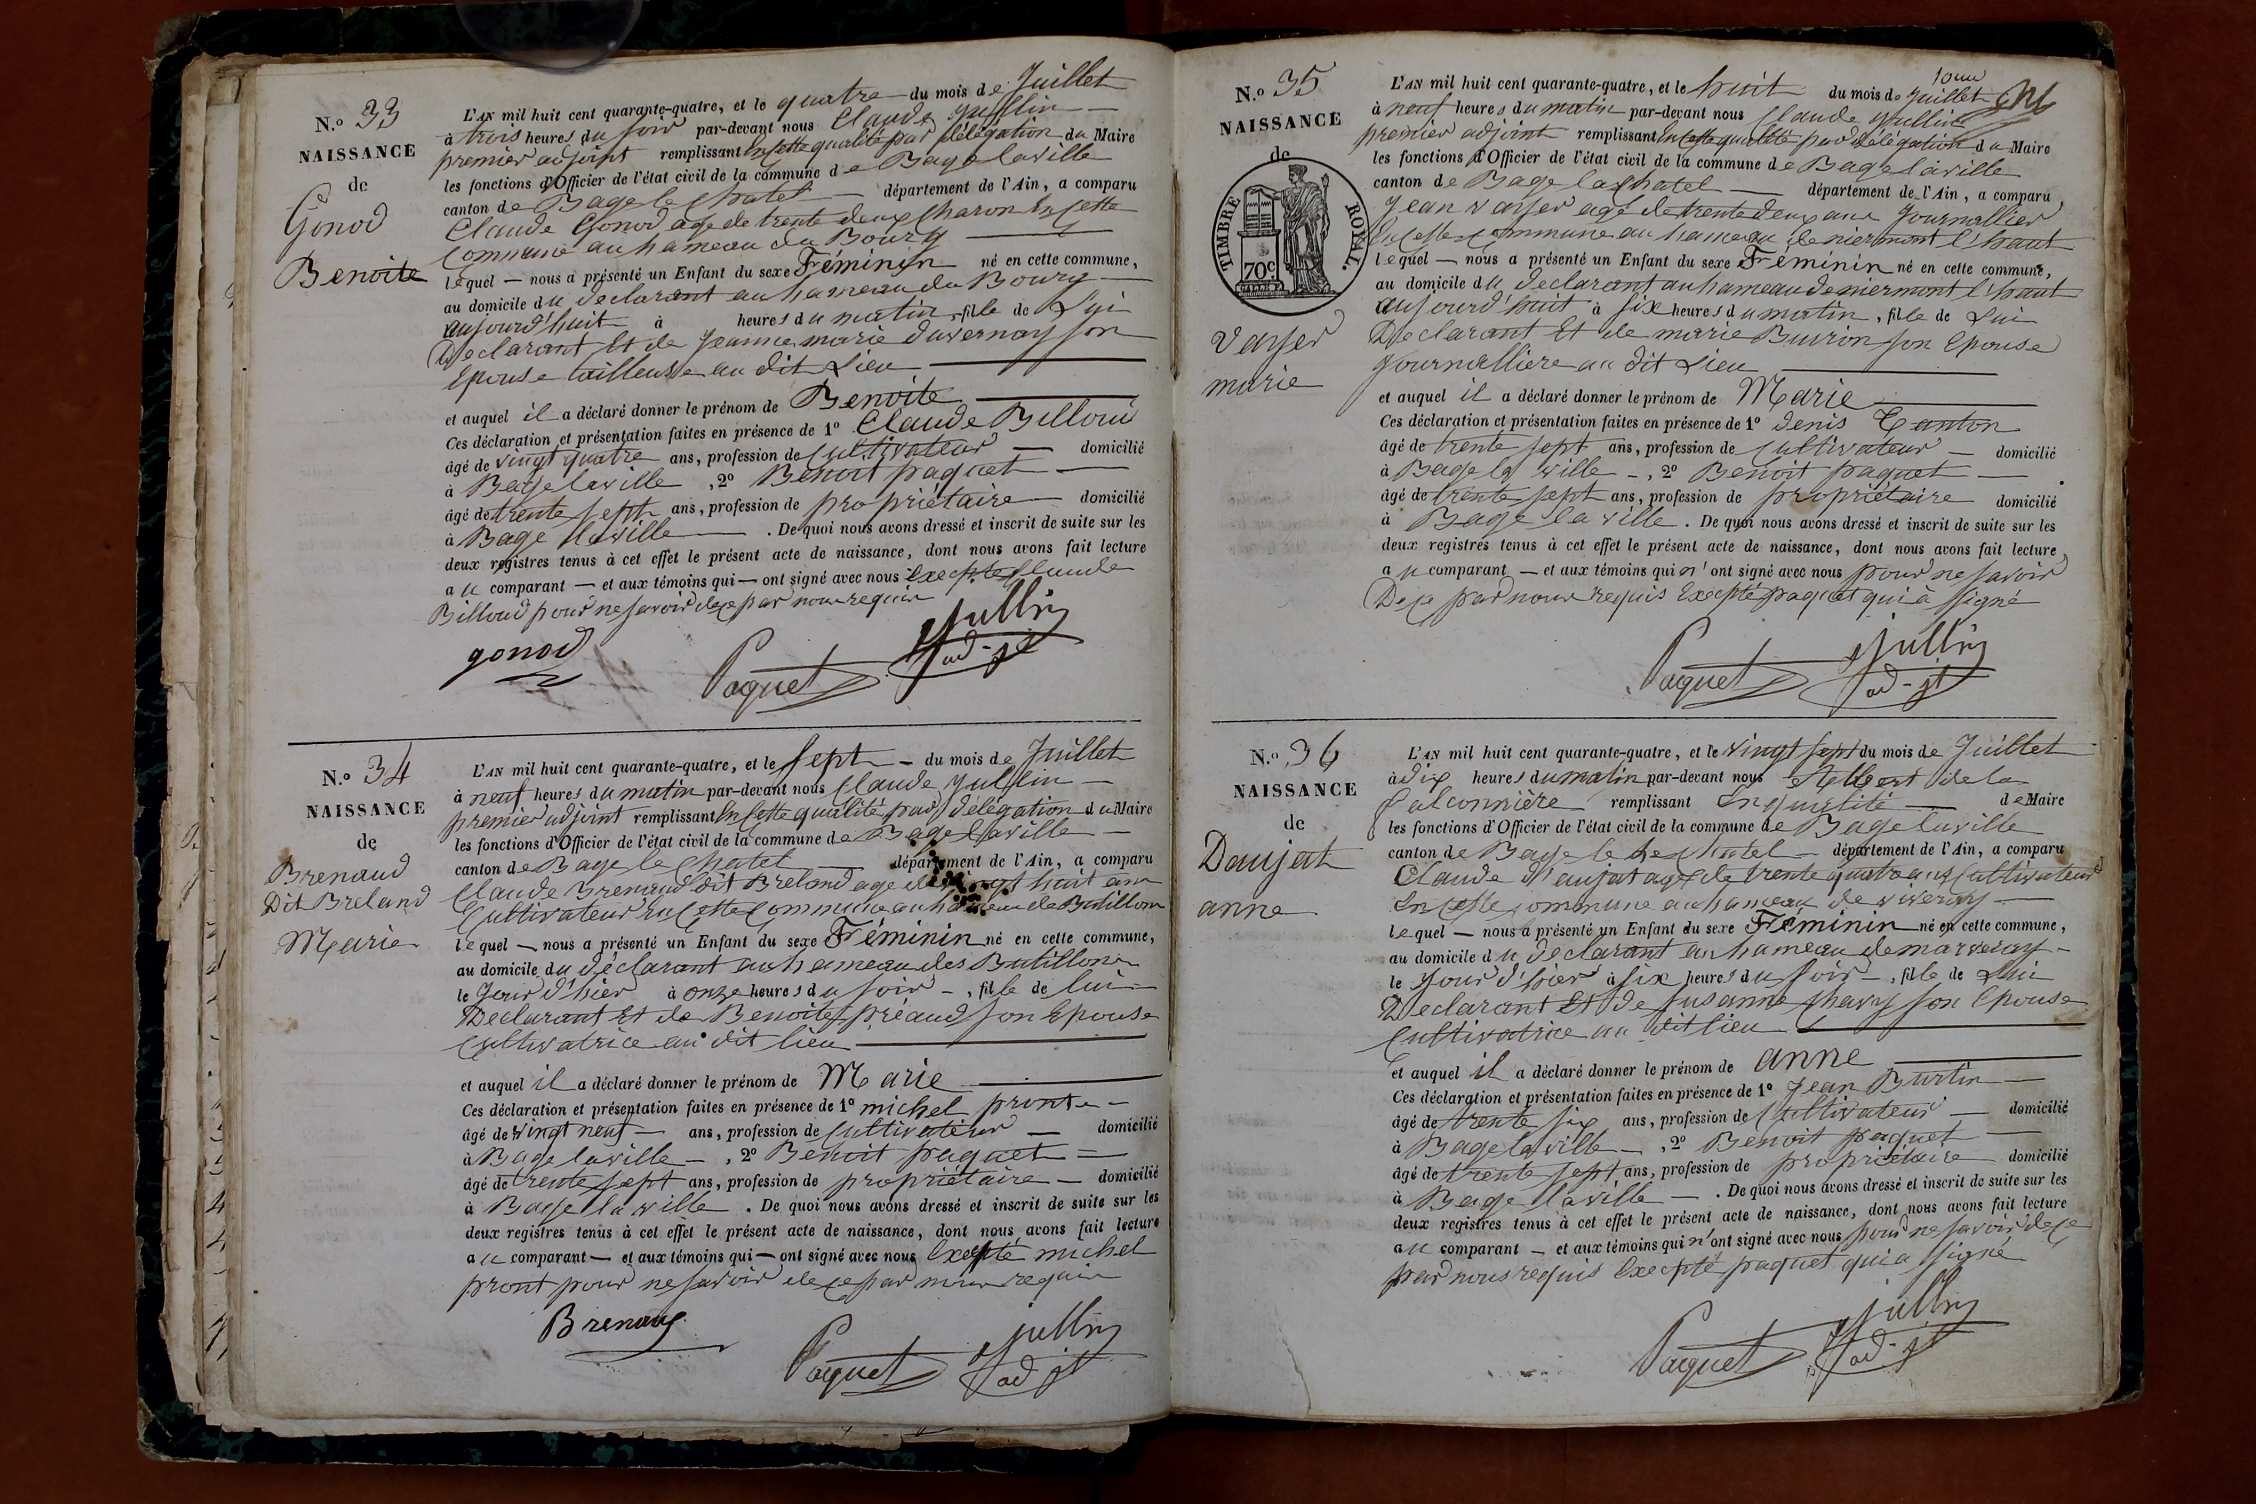 N.º 33
NAISSANCE
de
Gonod
Benoite
L'AN mil huit cent quarante-quatre, et le quatre du mois de Juillet
à trois heures du soir par-devant nous Claude Jullin
premier adjoint remplissant en cette qualité par délégation du Maire
les fonctions d'Officier de l'état civil de la commune de Bage laville
canton de Bage le Chatel département de l'Ain, a comparu
Claude Gonod age de trente deux Charon En Cette
Commune au hameau du Bourg
lequel — nous a présenté un Enfant du sexe Féminin né en cette commune,
au domicile du declarant au hameau du Bourg
aujourd'huit à heures du matin, fille de Lui
Declarant Et de Jeanne marie duvernay son
Epouse tailleuse au dit Lieu
et auquel il a déclaré donner le prénom de Benoite
Ces déclaration et présentation faites en présence de 1º Claude Billoud
âgé de vingt quatre ans, profession de Cultivateur — domicilié
à Bage laville, 2º Benoit paquet
âgé de trente sept ans, profession de propriétaire domicilié
à Bage laville. De quoi nous avons dressé et inscrit de suite sur les
deux registres tenus à cet effet le présent acte de naissance, dont nous avons fait lecture
au comparant — et aux témoins qui — ont signé avec nous Excepté Claude
Billoud pour ne savoir de ce par nous requis
gonod Paquet Jullin ad-jt
N.º 34
NAISSANCE
de
Brenaud
Dit Breland
Marie
L'AN mil huit cent quarante-quatre, et le Sept — du mois de Juillet
à neuf heures du matin par-devant nous Claude Jullin
premier adjoint remplissant En Cette qualité par délégation du Maire
les fonctions d'Officier de l'état civil de la commune de Bage laville
canton de Bage le Chatel département de l'Ain, a comparu
Claude Brenaud dit Breland age de vingt huit ans
Cultivateur En Cette Commune au hameau de Butillon
lequel — nous a présenté un Enfant du sexe Féminin né en cette commune,
au domicile du déclarant au hameau des Butillons
le Jour d'hier à onze heures du soir —, fille de lui
Declarant Et de Benoite préaud son Epouse
Cultivatrice au dit lieu
et auquel il a déclaré donner le prénom de Marie
Ces déclaration et présentation faites en présence de 1º michel pront
âgé de vingt neuf — ans, profession de Cultivateur — domicilié
à Bage laville —, 2º Benoit paquet
âgé de trente sept ans, profession de propriétaire — domicilié
à Bage la ville. De quoi nous avons dressé et inscrit de suite sur les
deux registres tenus à cet effet le présent acte de naissance, dont nous avons fait lecture
au comparant — et aux témoins qui — ont signé avec nous Excepté michel
pront pour ne savoir de ce par nous requis
Brenaud Paquet Jullin ad-jt
N.º 35
NAISSANCE
de
TIMBRE ROYAL.
70c
Vayser
marie
L'AN mil huit cent quarante-quatre, et le huit du mois de Juillet
à neuf heures du matin par-devant nous Claude Jullin
premier adjoint remplissant En Cette qualité par délégation du Maire
les fonctions d'Officier de l'état civil de la commune de Bage laville
canton de Bage la chatel département de l'Ain, a comparu
Jean vayser agé de trente deux ans Journallier
En Cette Commune au hameau de niermont l'haut
lequel — nous a présenté un Enfant du sexe Féminin né en cette commune,
au domicile du declarant au hameau de niermont l'haut
aujourd'huit à six heures du matin, fille de Lui
Declarant Et de marie Buiron son Epouse
Journalliere au dit Lieu
et auquel il a déclaré donner le prénom de Marie
Ces déclaration et présentation faites en présence de 1º denis Canton
âgé de trente sept ans, profession de Cultivateur — domicilié
à Bage la ville —, 2º Benoit paquet
âgé de trente sept ans, profession de propriétaire domicilié
à Bage la ville. De quoi nous avons dressé et inscrit de suite sur les
deux registres tenus à cet effet le présent acte de naissance, dont nous avons fait lecture
au comparant — et aux témoins qui n'ont signé avec nous pour ne savoir
De ce par nous requis Excepté paquet qui à signé
Paquet Jullin ad-jt
N.º 36
NAISSANCE
de
Daujat
anne
L'AN mil huit cent quarante-quatre, et le vingt sept du mois de Juillet
à dix heures du matin par-devant nous Albert de la
falconnière remplissant En qualité de Maire
les fonctions d'Officier de l'état civil de la commune de Bage laville
canton de Bage le chatel département de l'Ain, a comparu
Claude d'aujat agé de trente quatre ans Cultivateur
En Cette commune au hameau de
lequel — nous a présenté un Enfant du sexe Féminin né en cette commune,
au domicile du declarant au hameau de
le Jour d'hier à six heures du soir —, fille de Lui
Declarant Et de susanne chavy son Epouse
Cultivatrice au dit lieu
et auquel il a déclaré donner le prénom de anne
Ces déclaration et présentation faites en présence de 1º Jean Burtin
âgé de trente six ans, profession de Cultivateur — domicilié
à Bage laville —, 2º Benoit paquet
âgé de trente sept ans, profession de propriétaire domicilié
à Bage laville —. De quoi nous avons dressé et inscrit de suite sur les
deux registres tenus à cet effet le présent acte de naissance, dont nous avons fait lecture
au comparant — et aux témoins qui n'ont signé avec nous pour ne savoir de ce
par nous requis Excepté paquet qui a signé
Paquet Jullin ad-jt